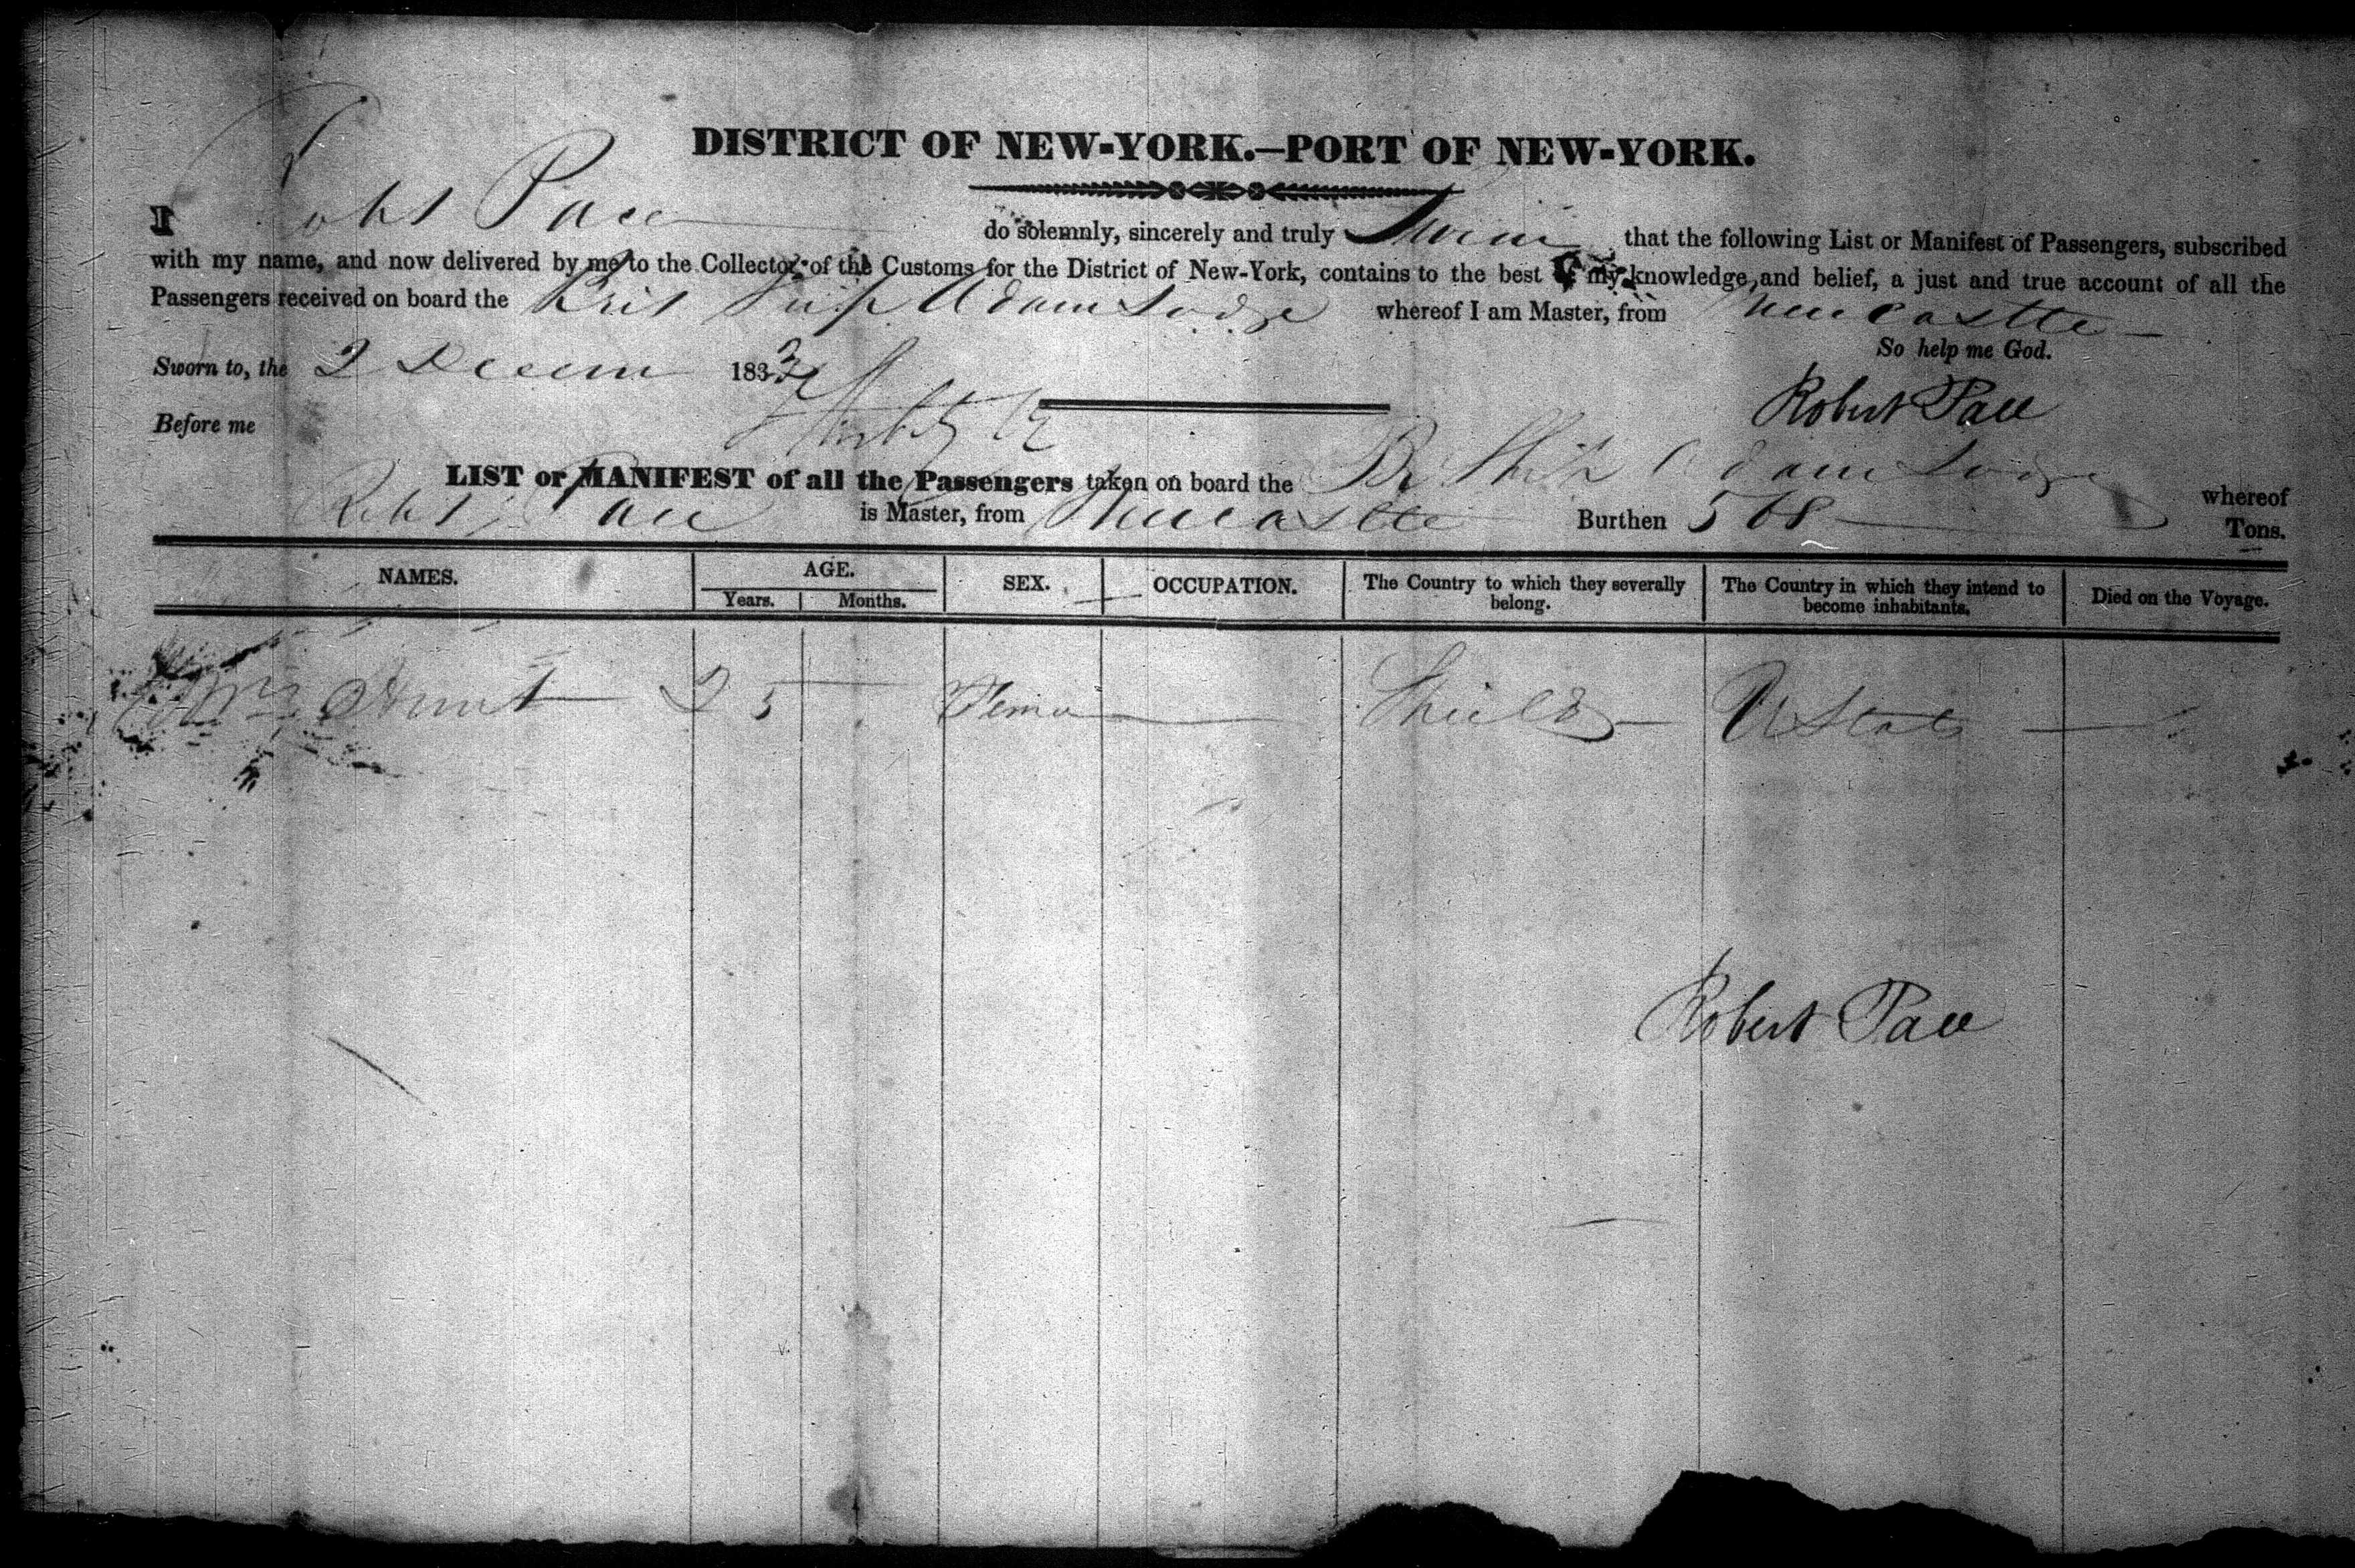 DISTRICT OF NEW-YORK.—PORT OF NEW-YORK.
I Robt Pace do solemnly, sincerely and truly Swear that the following List or Manifest of Passengers, subscribed
with my name, and now delivered by me to the Collector of the Customs for the District of New-York, contains to the best of my knowledge, and belief, a just and true account of all the
Passengers received on board the Brit Ship Adam Lodge whereof I am Master, from Newcastle
So help me God.
Sworn to, the 2 Decem 1833
Robert Pace
Before me
LIST or MANIFEST of all the Passengers taken on board the Br Ship Adam Lodge whereof
Robt Pace is Master, from Newcastle Burthen 568 Tons.
NAMES. AGE. SEX. OCCUPATION. The Country to which they severally belong. The Country in which they intend to become inhabitants. Died on the Voyage.
Years. Months.
Mrs Hunt 25 Fema Shields U States
Robert Pace